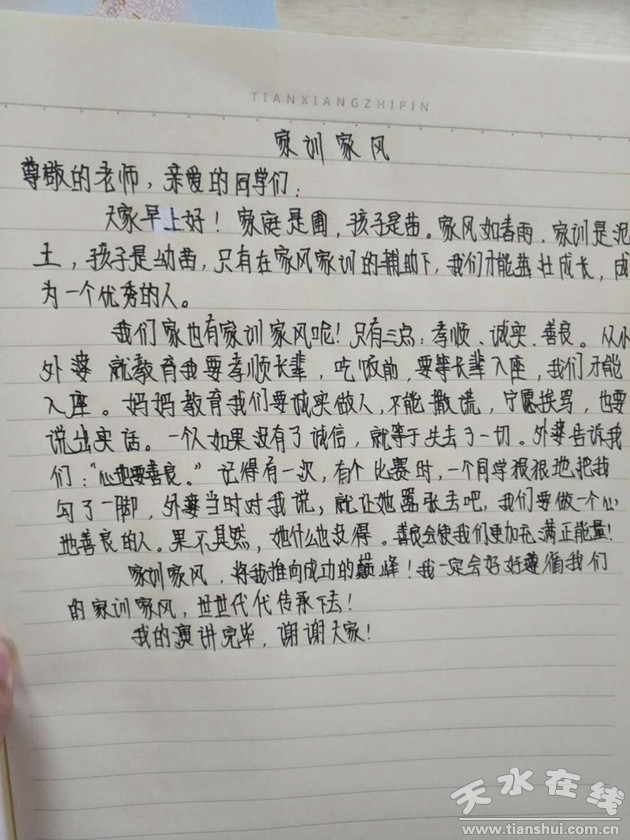 TIANXIANGZHIPIN
家训家风
尊敬的老师，亲爱的同学们：
大家早上好！家庭是圃，孩子是苗。家风如春雨，家训是泥
土，孩子是幼苗，只有在家风家训的辅助下，我们才能茁壮成长，成
为一个优秀的人。
我们家也有家训家风呢！只有三点：孝顺、诚实、善良。从小
外婆就教育我要孝顺长辈，吃饭前，要等长辈入座，我们才能
入座。妈妈教育我们要诚实做人，不能撒谎，宁愿挨骂，也要
说出实话。一个人如果没有了诚信，就等于失去了一切。外婆告诉我
们："心地要善良。"记得有一次，有个比赛时，一个同学狠狠地把我
勾了一脚，外婆当时对我说，就让她嚣张去吧，我们要做一个心
地善良的人。果不其然，她什么也没得。善良会使我们更加充满正能量！
家训家风，将我推向成功的巅峰！我一定会好好遵循我们
的家训家风，世世代代传承下去！
我的演讲完毕，谢谢大家！
天水在线
www.tianshui.com.cn